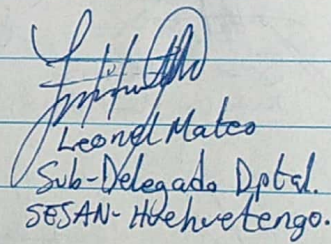 Leonel Mateo
Sub-Delegado Dptal.
SESAN-Huehuetengo.